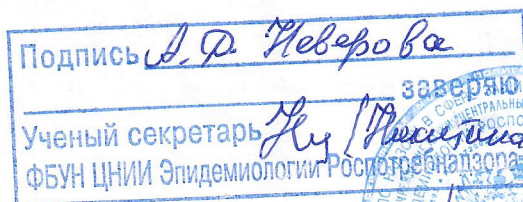 Подпись А.Д. Неверова
заверяю
Ученый секретарь Ну (Никитина
ФБУН ЦНИИ Эпидемиологии Роспотребнадзора